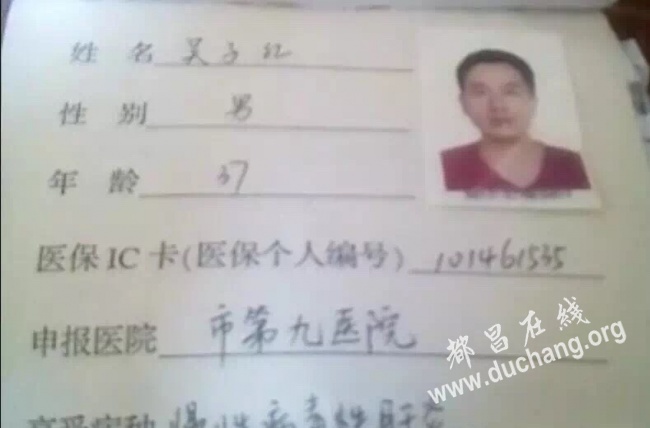 姓 名 吴子红
性 别 男
年 龄 37
医保IC卡(医保个人编号) 101461535
申报医院 市第九医院
享受病种 慢性病毒性肝炎
都昌在线
www.duchang.org